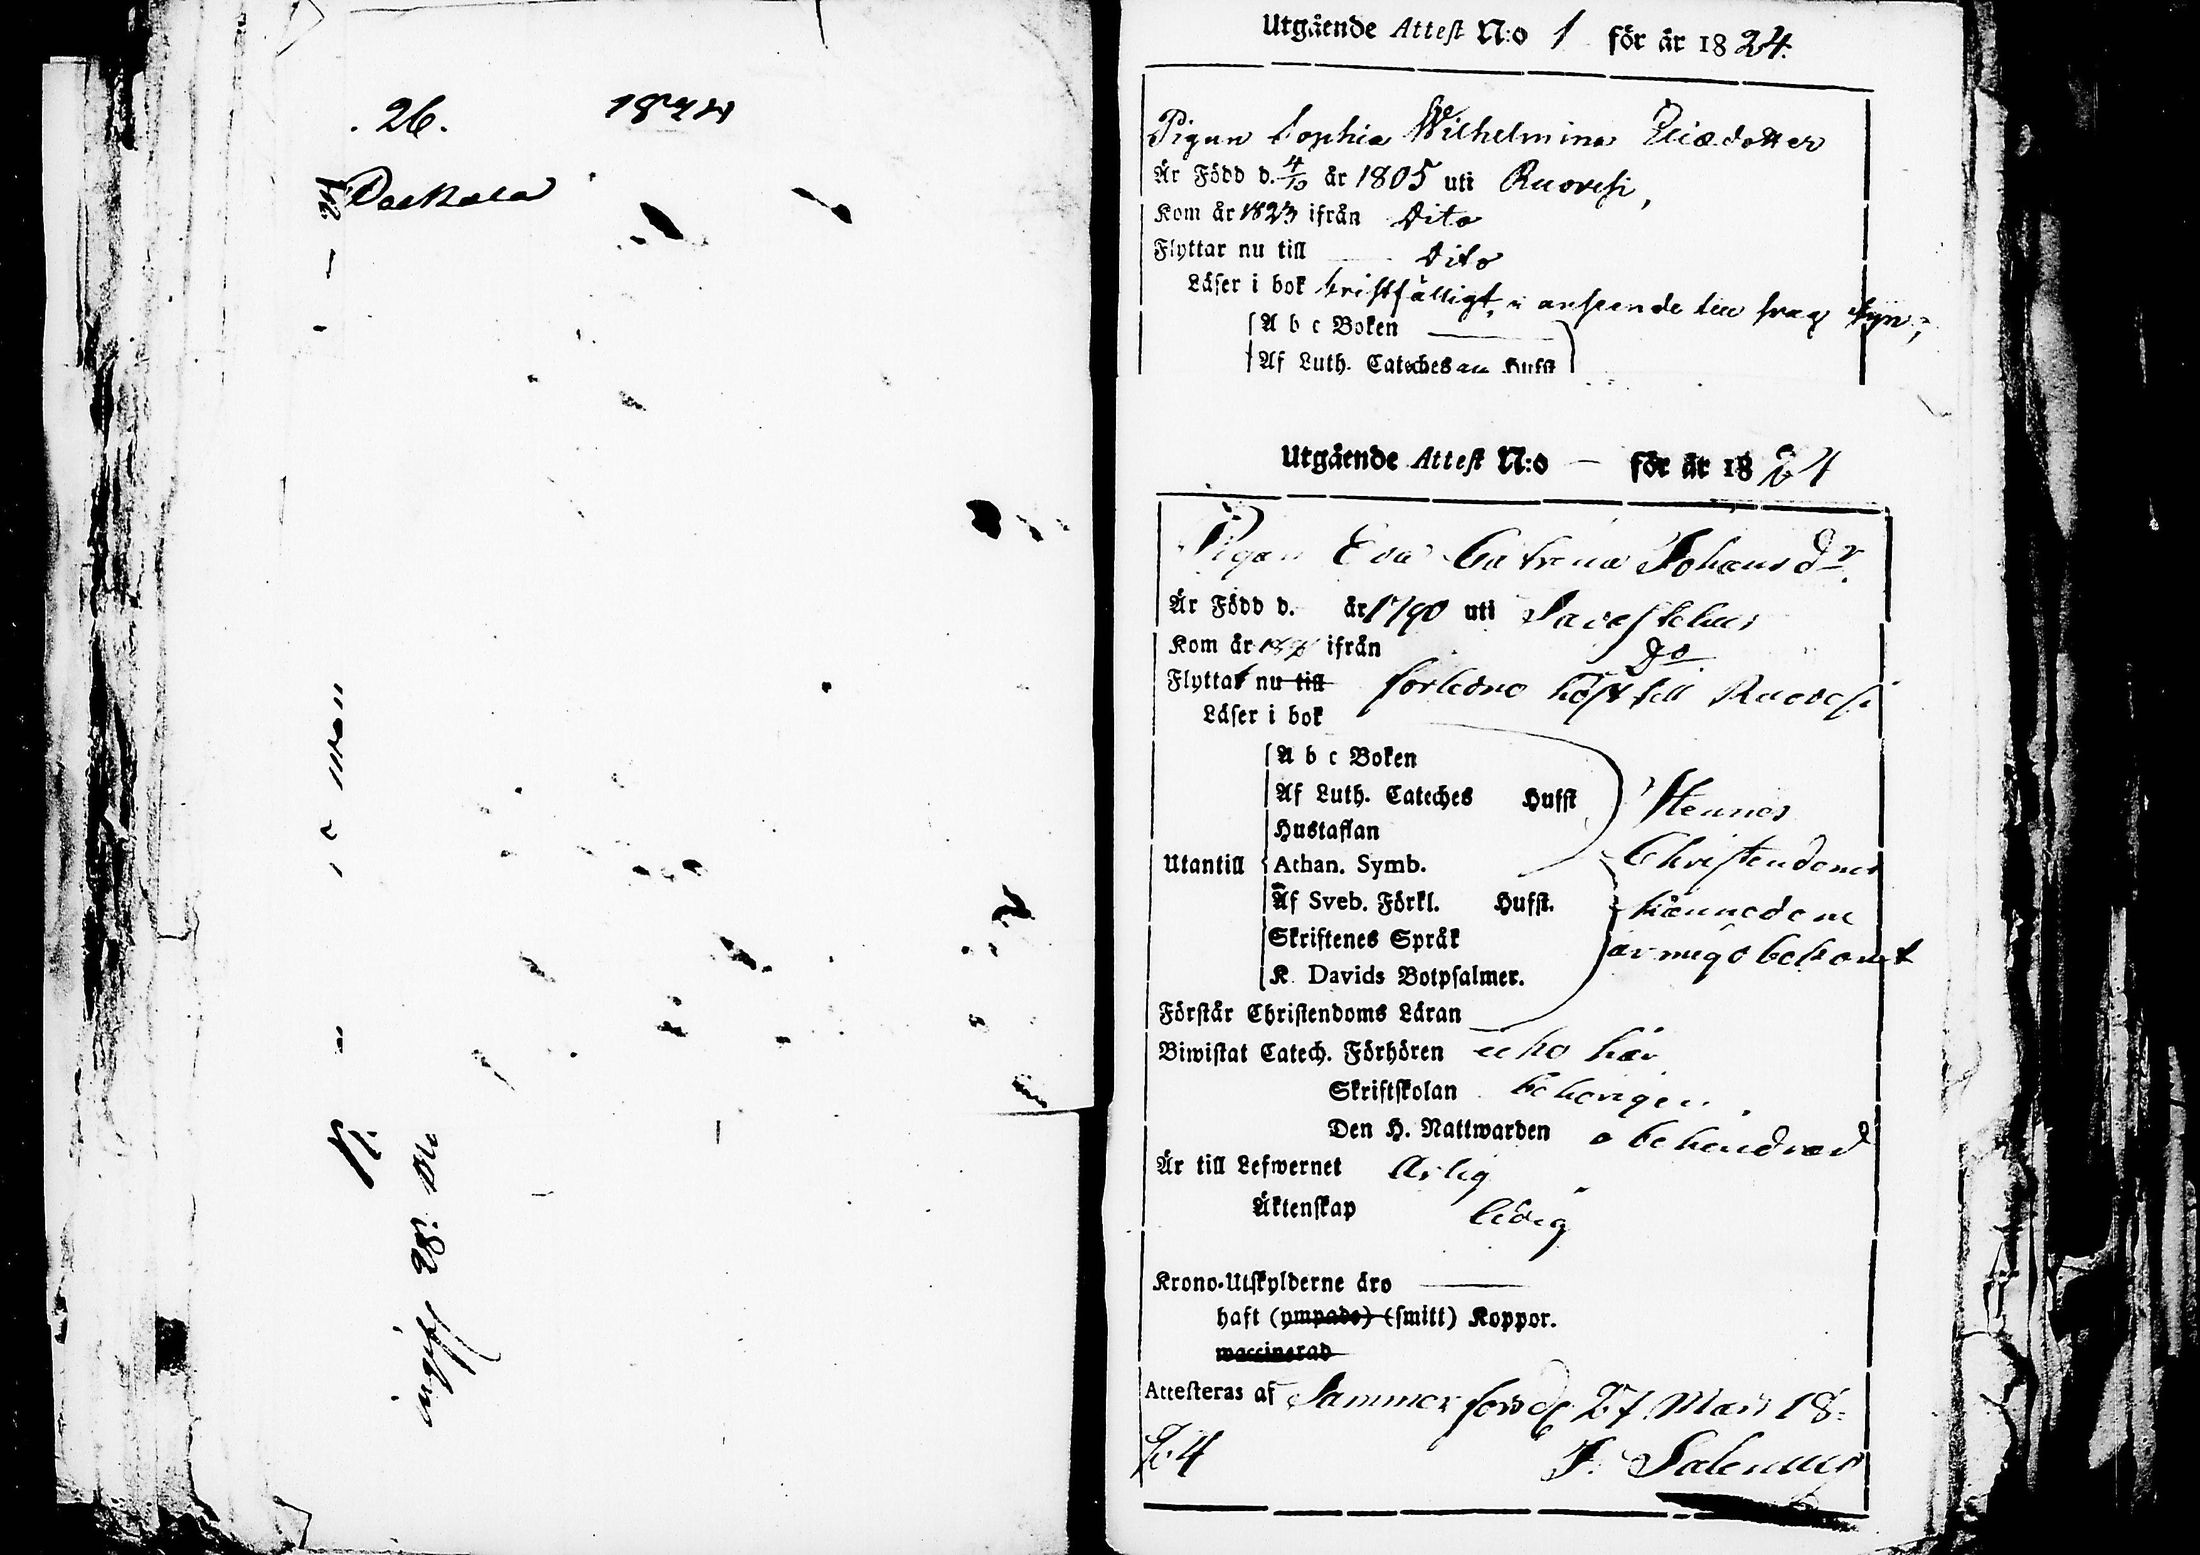 . 26. 1824
ingift 28:
Utgående Attest N:o 1 för år 1824.
Pigan Sophia Wilhelmina Eliædotter
Är Född d. 4/10 år 1805 uti Ruovesi,
Kom år 1823 ifrån Dito
Flyttar nu till Dito
Läser i bok bristfälligt, i anseende till svag syn;
A b c Boken
Af Luth. Cateches Hufst
Utgående Attest N:o — för år 1824
Pigan Eva Catrena Johansdr.
Är Född d. år 1790 uti Tavastehus
Kom år ifrån Do
Flyttat nu till förledne höst till Ruovesi
Läser i bok
A b c Boken
Af Luth. Cateches Hufst Hennes
Hustaflan
Utantill Athan. Symb. Christendoms
Af Sveb. Förkl. Hufst. kännedom
Skriftenes Språk är mig obekant
K. Davids Botpsalmer.
Förstår Christendoms Läran
Biwistat Catech. Förhören icke här
Skriftskolan behörigen.
Den H. Nattwarden obehindrad
Är till Lefwernet Ärlig
Äktenskap ledig
Krono-Utskylderne äro
haft (ympade) (smitt) Koppor.
waccinerad
Attesteras af Tammerfors d. 27 Mars 18-
24